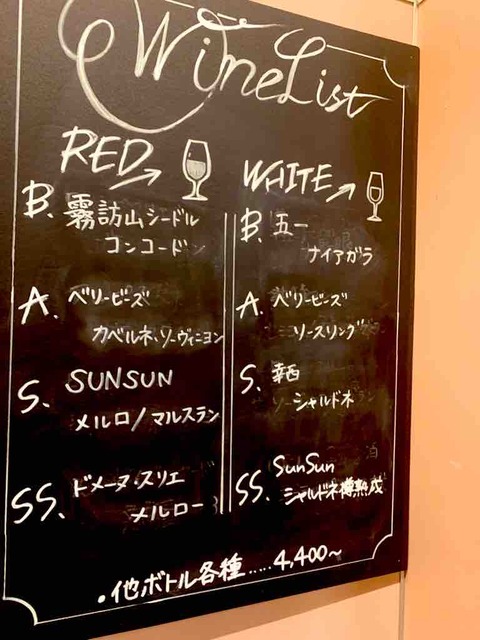 Wine List
RED
B. 霧訪山シードル
コンコード
A. ベリービーズ
カベルネ、ソーヴィニヨン
S. SUNSUN
メルロ/マルスラン
SS. ドメーヌ・スリエ
メルロー
WHITE
B. 五一
ナイアガラ
A. ベリービーズ
ソースリング
S. 幸西
シャルドネ
SS. SunSun
シャルドネ樽熟成
・他ボトル各種.....4,400~